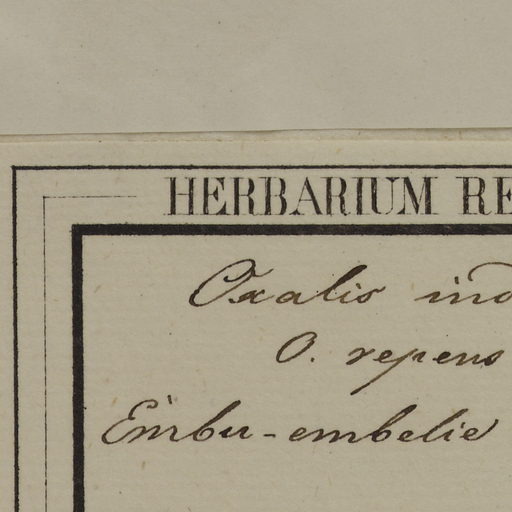 HERBARIUM RE
Oxalis ind
O. repens
Embu-embelie